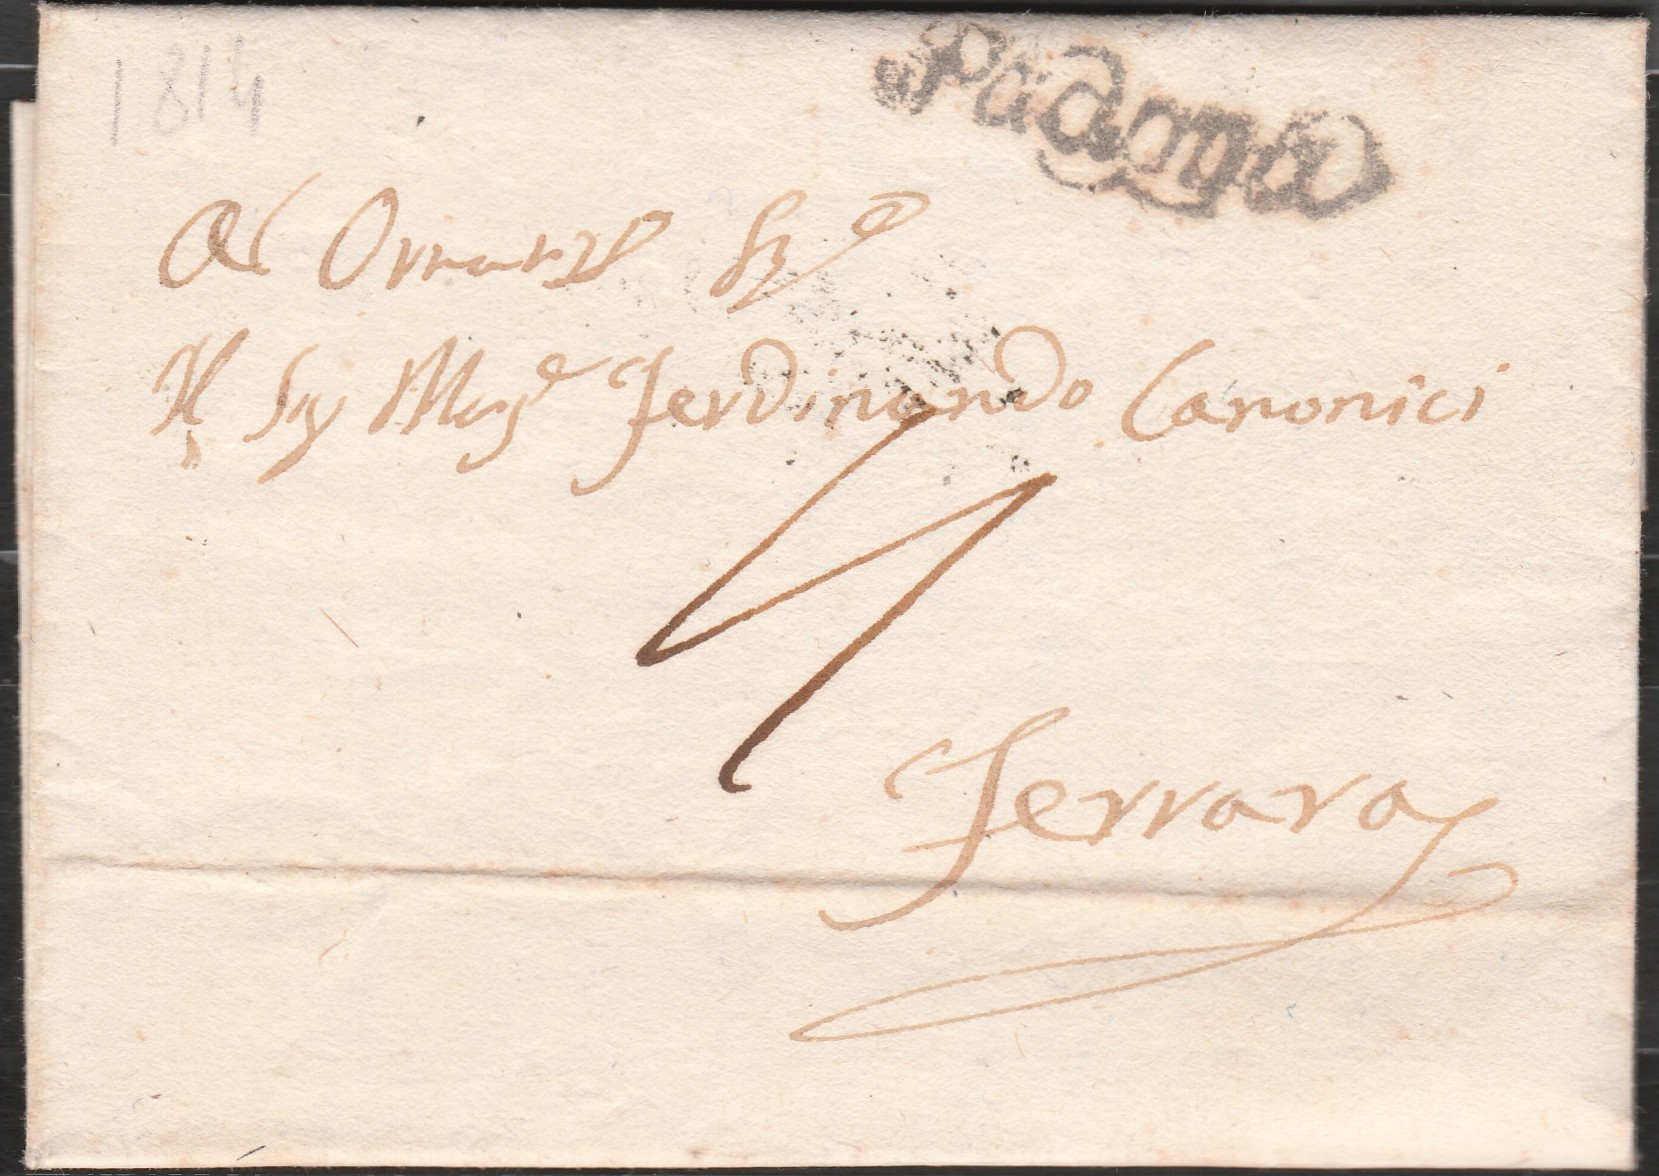 1814
Padova
Al Ornatis.º Sig.e
Il Sig Marg.e Ferdinando Canonici
4
Ferrara